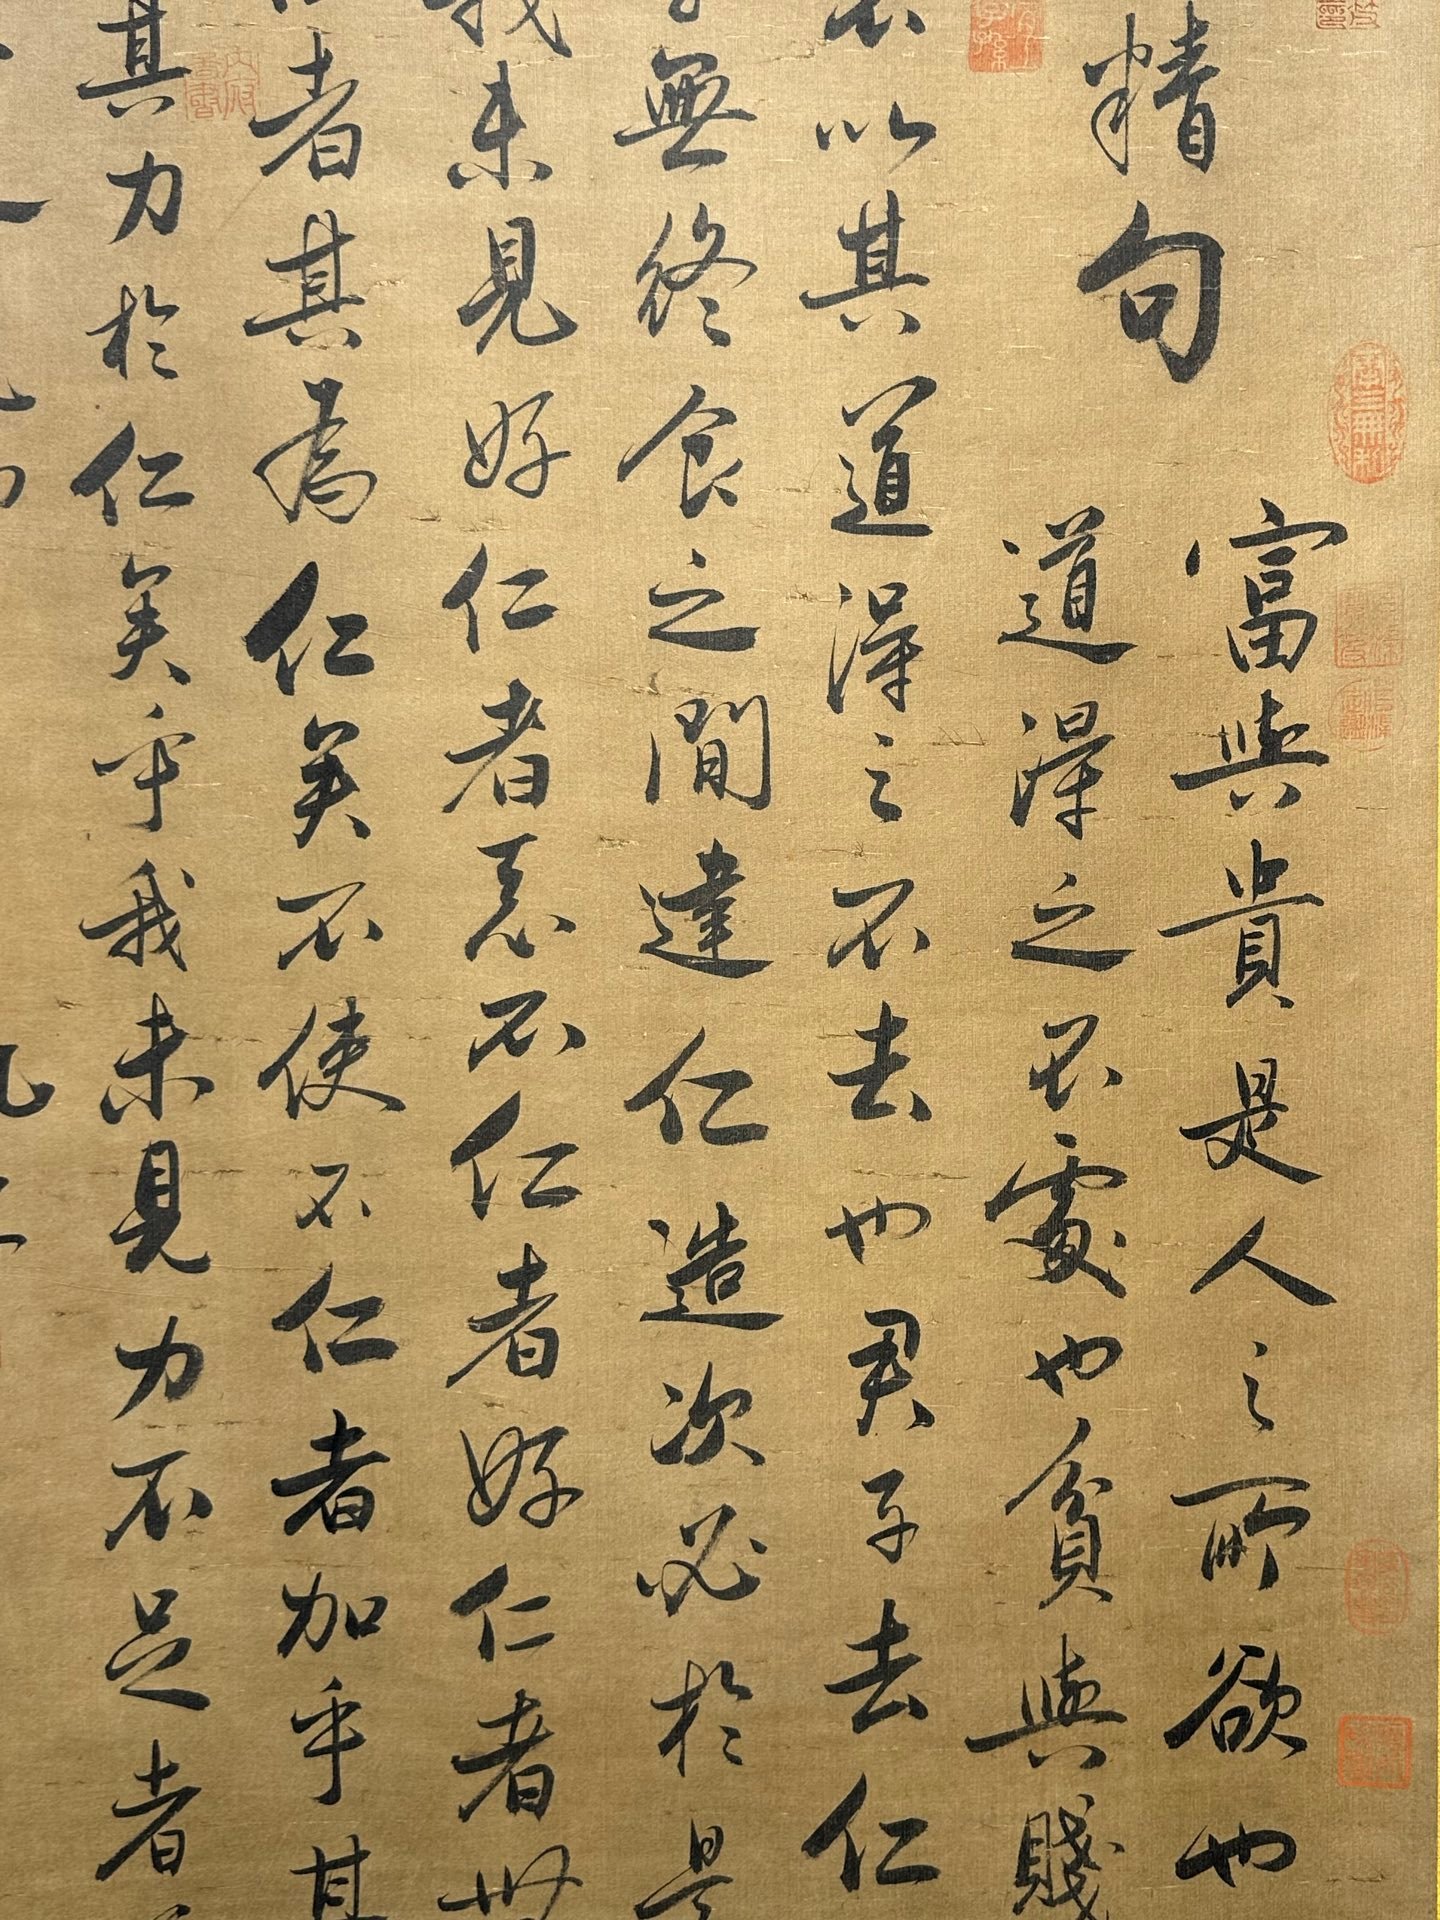 精句
富與貴是人之所欲也
道得之不處也貧與賤
以其道得之不去也君子去仁
無終食之間違仁造次必於是
我未見好仁者惡不仁者好仁者無
者其為仁矣不使不仁者加乎其
其力於仁矣乎我未見力不足者